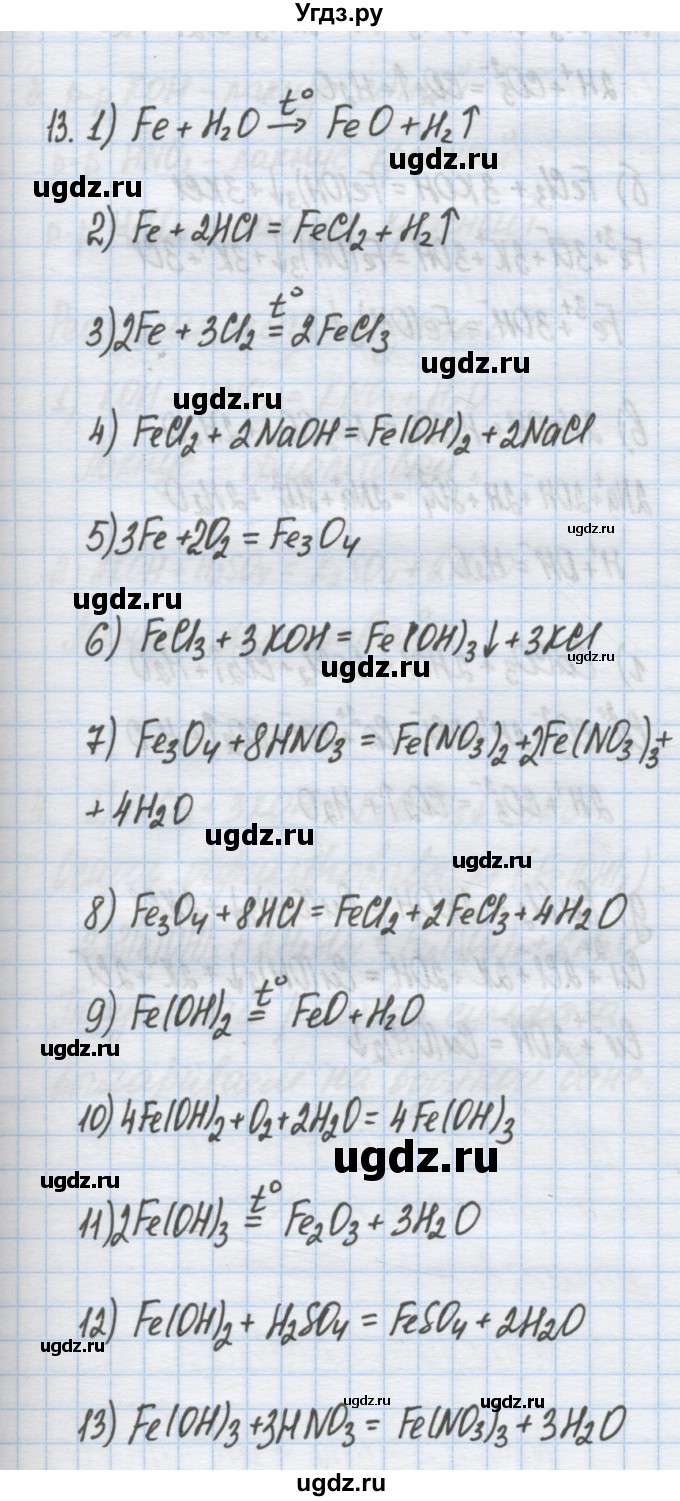 Угдз.ру
13. 1) Fe + H₂O t° → FeO + H₂↑
ugdz.ru
ugdz.ru
2) Fe + 2HCl = FeCl₂ + H₂↑
3) 2Fe + 3Cl₂ t° = 2FeCl₃
ugdz.ru
ugdz.ru
4) FeCl₂ + 2NaOH = Fe(OH)₂ + 2NaCl
ugdz.ru
5) 3Fe + 2O₂ = Fe₃O₄
ugdz.ru
6) FeCl₃ + 3KOH = Fe(OH)₃↓ + 3KCl
ugdz.ru
ugdz.ru
7) Fe₃O₄ + 8HNO₃ = Fe(NO₃)₂ + 2Fe(NO₃)₃ +
+ 4H₂O
ugdz.ru
ugdz.ru
8) Fe₃O₄ + 8HCl = FeCl₂ + 2FeCl₃ + 4H₂O
9) Fe(OH)₂ t° = FeO + H₂O
ugdz.ru
10) 4Fe(OH)₂ + O₂ + 2H₂O = 4Fe(OH)₃
ugdz.ru
ugdz.ru
11) 2Fe(OH)₃ t° = Fe₂O₃ + 3H₂O
12) Fe(OH)₂ + H₂SO₄ = FeSO₄ + 2H₂O
ugdz.ru
ugdz.ru
ugdz.ru
13) Fe(OH)₃ + 3HNO₃ = Fe(NO₃)₃ + 3H₂O
ugdz.ru